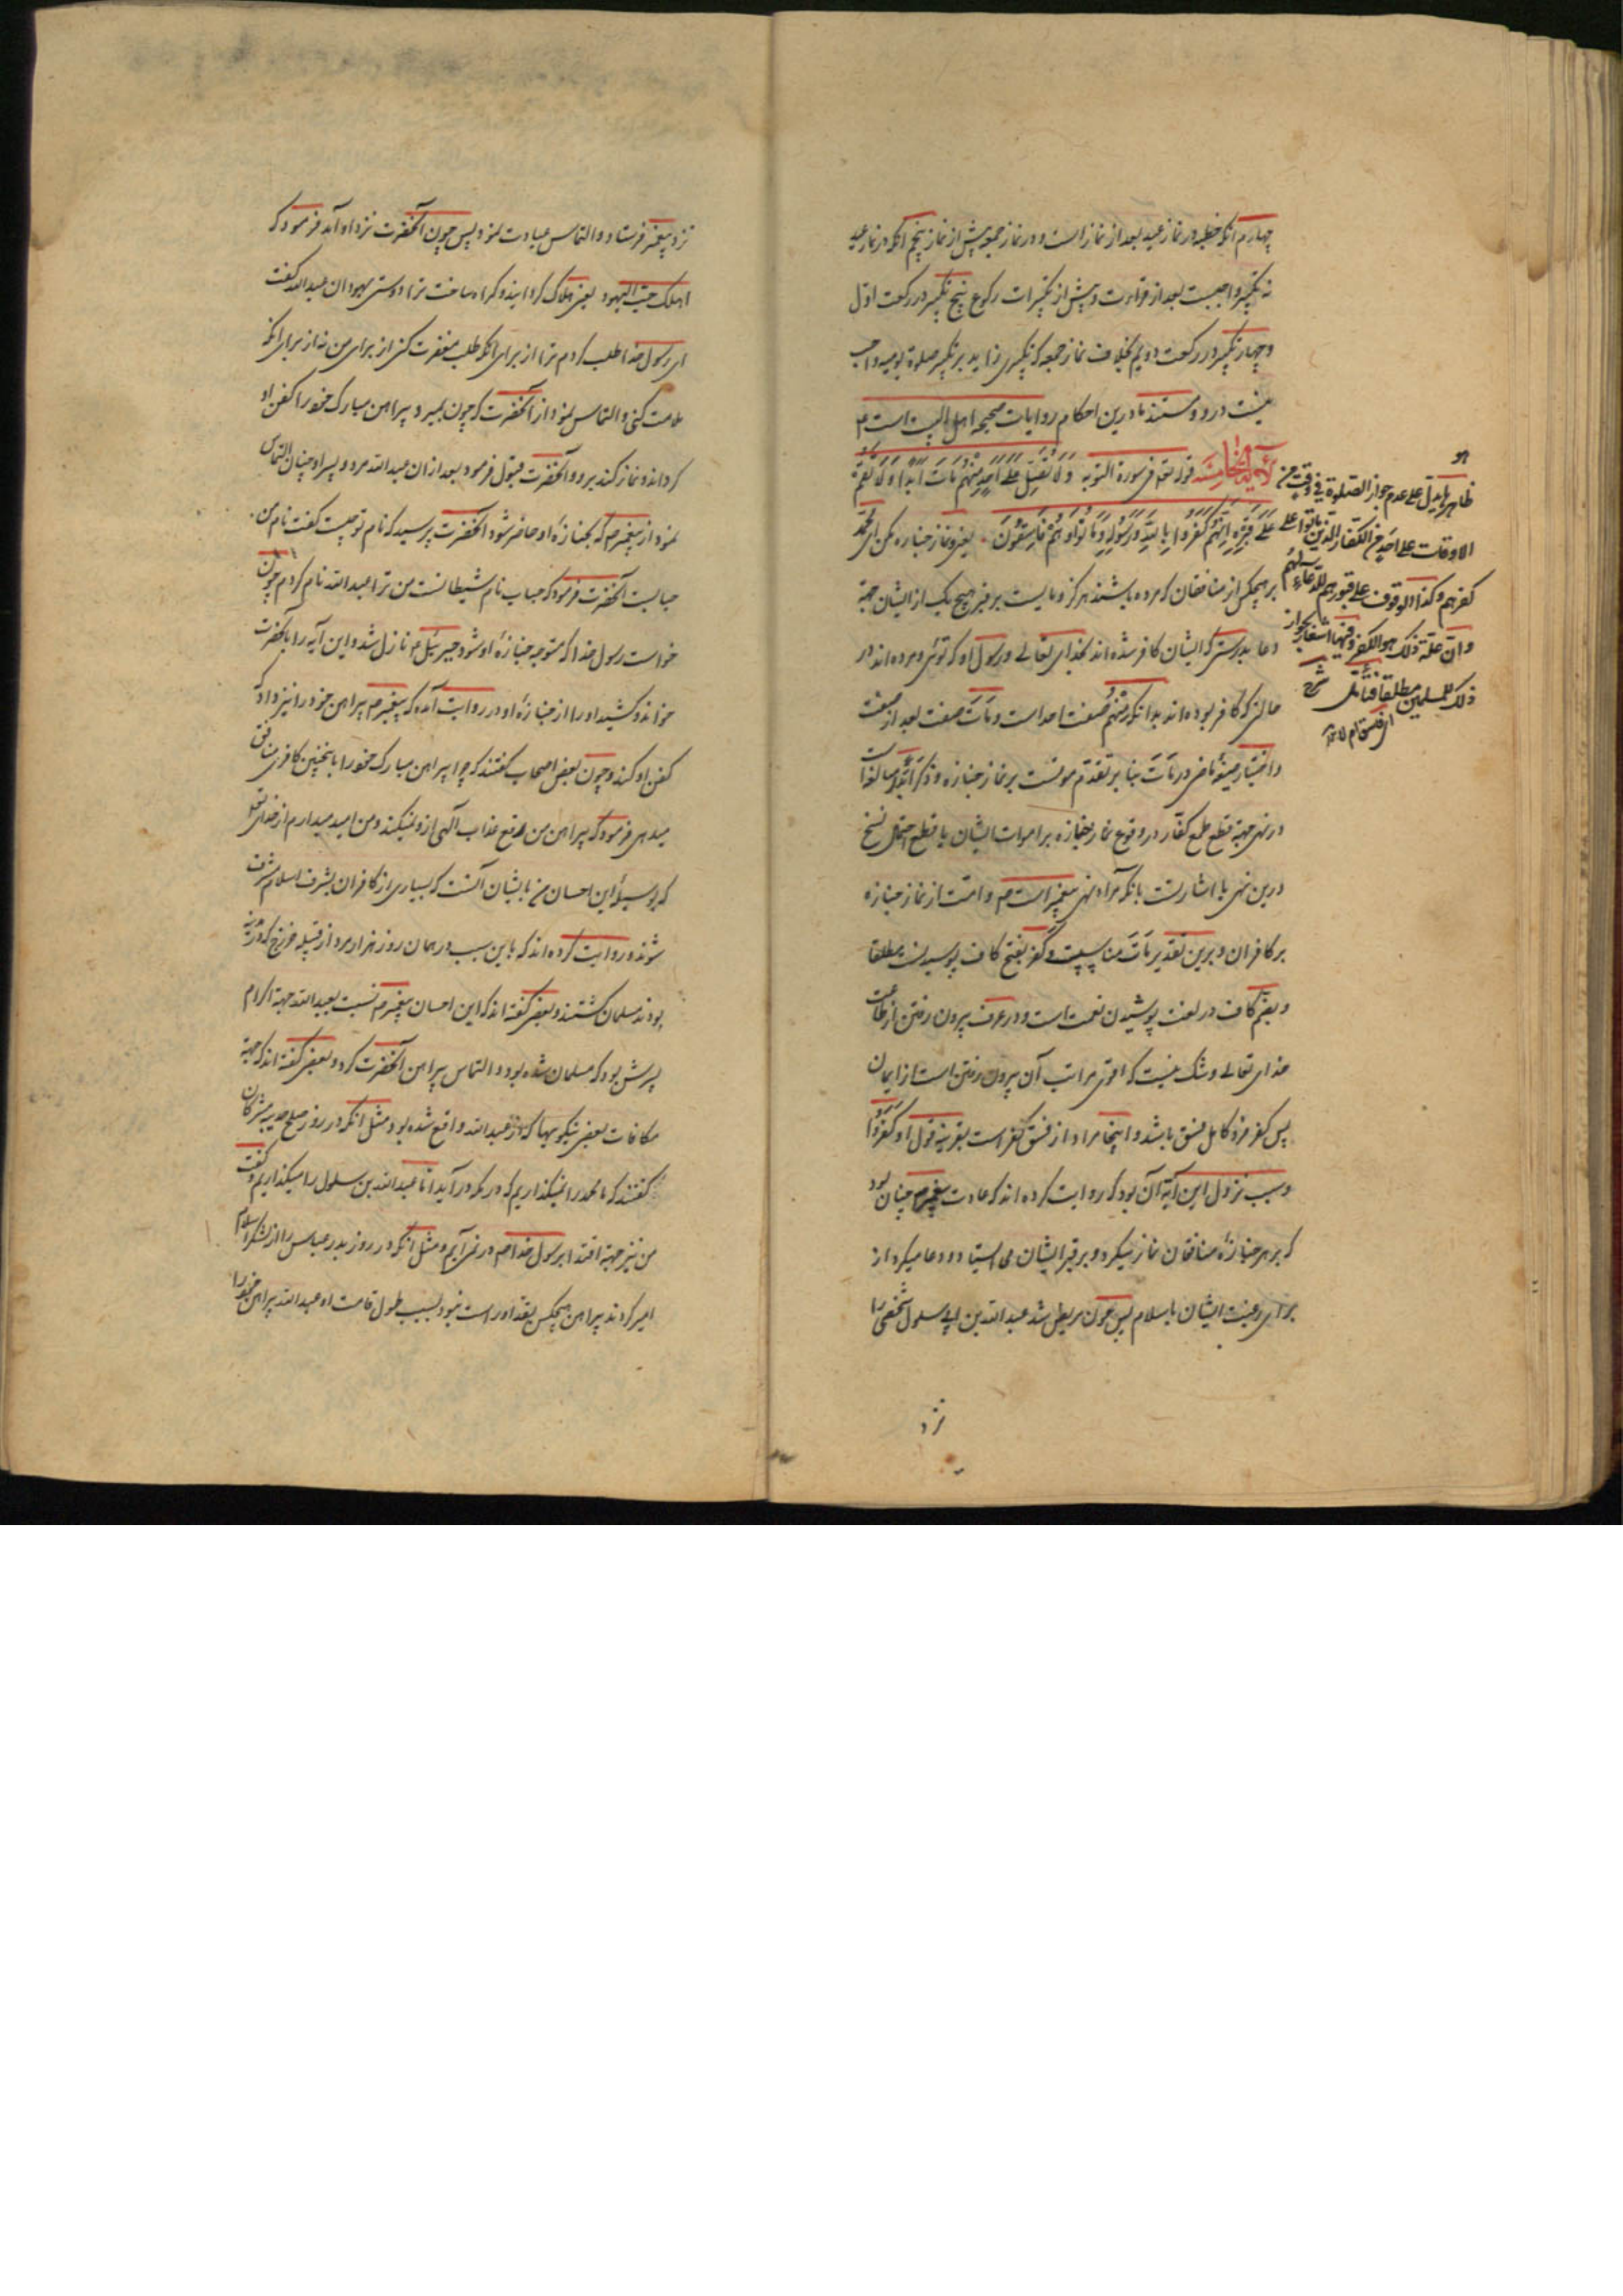 چهارم آنکه خطبه در نماز عید بعد از نماز است و در نماز جمعه پیش از نماز پنجم آنکه در نماز عید
نه تکبیر واجبست بعد از قراءت و پیش از تکبیرات رکوع پنج تکبیر در رکعت اول
و چهار تکبیر در رکعت دویم بخلاف نماز جمعه که تکبیری زاید بر تکبیر صلوة یومیه واجب
نیست درو و مستند ما درین احکام روایات صحیحه اهل البیت است ع
الآیة الخامسة قوله تعالی فی سورة التوبه وَلَا تُصَلِّ عَلَی أَحَدٍ مِنْهُمْ مَاتَ أَبَدًا وَلَا تَقُمْ
عَلَی قَبْرِهِ إِنَّهُمْ كَفَرُوا بِاللَّهِ وَرَسُولِهِ وَمَاتُوا وَهُمْ فَاسِقُونَ یعنی و نماز جنازه مکن ای محمد
بر هیچکس از منافقان که مرده باشند هرگز و مایست بر قبر هیچ یک از ایشان جهة
دعا بدرستی که ایشان کافر شده اند بخدای تعالی و رسول او که توئی و مرده اند در
حالتی که کافر بوده اند بدانکه منهم صفت احد است و مات صفت بعد از صفت
و اختیار صیغه ماضی در مات بنا بر تقدم موتست بر نماز جنازه و ذکر ابدا مبالغه است
در نهی جهة قطع طمع کفار در وقوع نماز جنازه بر اموات ایشان یا قطع احتمال نسخ
درین نهی یا اشارتست بانکه مراد نهی پیغمبر است ص و امت از نماز جنازه
بر کافران و برین تقدیر مات مناسبست و کفر بفتح کاف پوسیدنست مطلقا
و بضم کاف در لغت پوشیدن نعمت است و در عرف بیرون رفتن از طاعت
خدای تعالی و شک نیست که اقوی مراتب آن بیرون رفتن است از ایمان
پس کفر فرد کامل فسق باشد و اینجا مراد از فسق کفر است بقرینه قول او کفروا
و سبب نزول این آیه آن بود که روایت کرده اند که عادت پیغمبر ص چنان بود
که بر هر جنازۀ منافقان نماز میکرد و بر قبر ایشان می ایستاد و دعا میکرد از
برای رغبت ایشان باسلام پس چون مریض شد عبد الله بن ابی سلول شخصی را
نزد
هو
ظاهرها یدل علی عدم جواز الصلوة فی وقت من
الاوقات علی احد من الکفار الذین ماتوا علی
کفرهم و کذا الوقوف علی قبورهم للدعاء لهم
و ان علة ذلک هو الکفر و فیها اشعار بجواز
ذلک للمسلمین مطلقا فتامل
نزد پیغمبر فرستاد و التماس عیادت نمود پس چون آنحضرت نزد او آمد فرمود که
اهلکک حب الیهود یعنی هلاک گردانید و گمراه ساخت ترا دوستی یهودان عبد الله گفت
ای رسول خدا طلب کردم ترا از برای آنکه طلب مغفرت کنی از برای من نه از برای آنکه
ملامت کنی و التماس نمود از آنحضرت که چون بمیرد پیراهن مبارک خود را کفن او
گرداند و نماز کند برو و آنحضرت قبول فرمود بعد از ان عبد الله مرد و پسر او چنان التماس
نمود از پیغمبر ص که بجنازۀ او حاضر شود آنحضرت پرسید که نام تو چیست گفت نام من
حبابست آنحضرت فرمود که حباب نام شیطانست من ترا عبد الله نام کردم چون
خواست رسول خدا که متوجه جنازۀ او شود جبرئیل ع نازل شد و این آیه را بآنحضرت
خواند و کشید او را از جنازۀ او و در روایت آمده که پیغمبر ص پیراهن خود را نیز داد که
کفن او کنند و چون بعض اصحاب گفتند که چرا پیراهن مبارک خود را باینچنین کافری منافق
میدهی فرمود که پیراهن من دفع عذاب الهی ازو نمیکند و من امید میدارم از خدای تعالی
که بوسیلۀ این احسان من بایشان آنست که بسیاری از کافران بشرف اسلام مشرف
شوند و روایت کرده اند که باین سبب در همان روز هزار مرد از قبیله خزرج که در مدینه
بودند مسلمان گشتند و بعضی گفته اند که این احسان پیغمبر ص نسبت بعبد الله جهة اکرام
پسرش بود که مسلمان شده بود و التماس پیراهن آنحضرت کرد و بعضی گفته اند که جهة
مکافات بعضی نیکوییها که از عبد الله واقع شده بود مثل آنکه در روز صلح حدیبیه مشرکان
گفتند که ما محمد را نمیگذاریم که در مکه در آید اما عبد الله بن سلول را میگذاریم و گفت
من نیز جهة اقتدا برسول خدا ص در نمی آیم و مثل آنکه در روز بدر عباس را از لشکر اسلام
اسیر کردند پیراهن هیچکس بقد او راست نبود بسبب طول قامت او عبد الله پیراهن خود را